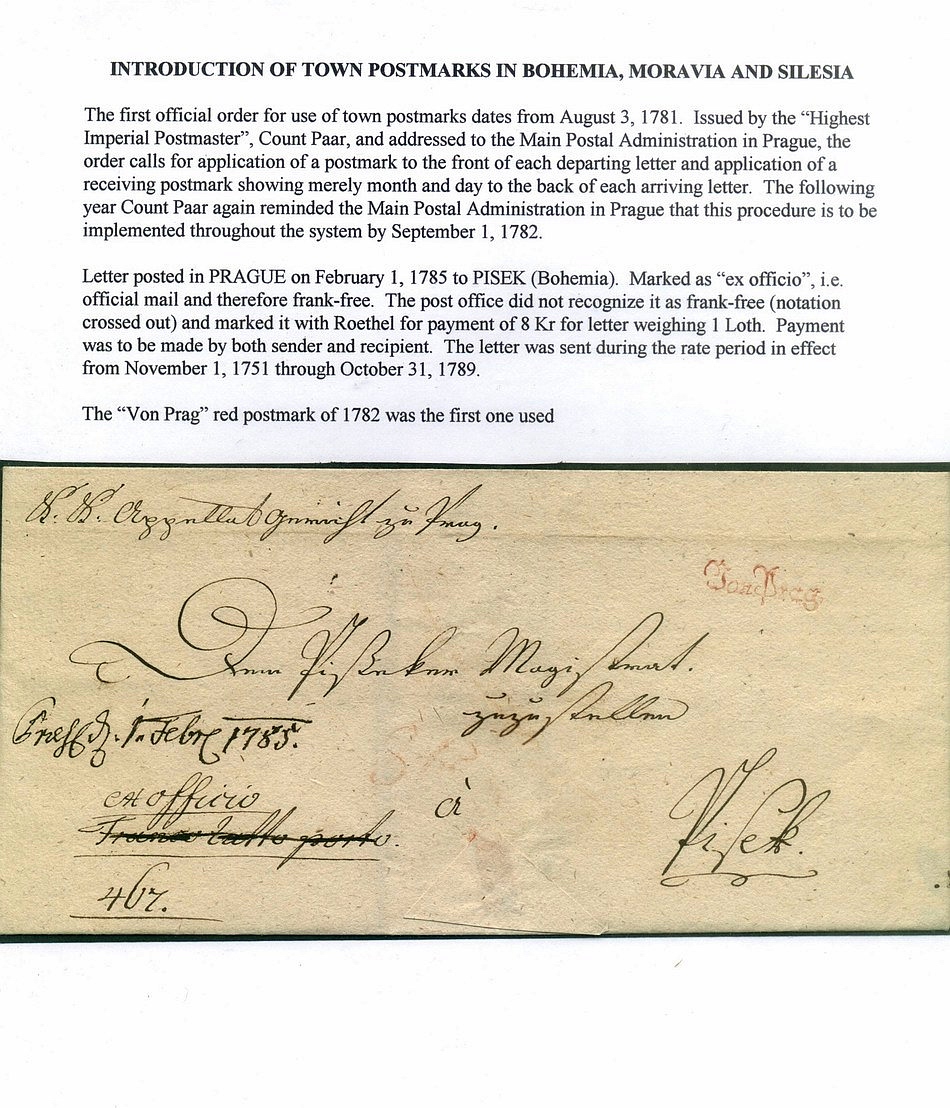 INTRODUCTION OF TOWN POSTMARKS IN BOHEMIA, MORAVIA AND SILESIA
The first official order for use of town postmarks dates from August 3, 1781. Issued by the “Highest
Imperial Postmaster”, Count Paar, and addressed to the Main Postal Administration in Prague, the
order calls for application of a postmark to the front of each departing letter and application of a
receiving postmark showing merely month and day to the back of each arriving letter. The following
year Count Paar again reminded the Main Postal Administration in Prague that this procedure is to be
implemented throughout the system by September 1, 1782.
Letter posted in PRAGUE on February 1, 1785 to PISEK (Bohemia). Marked as “ex officio”, i.e.
official mail and therefore frank-free. The post office did not recognize it as frank-free (notation
crossed out) and marked it with Roethel for payment of 8 Kr for letter weighing 1 Loth. Payment
was to be made by both sender and recipient. The letter was sent during the rate period in effect
from November 1, 1751 through October 31, 1789.
The “Von Prag” red postmark of 1782 was the first one used
K. K. zu Prag.
Von Prag
Dem Magistrat.
zuzustellen
1. Febr 1785.
ex officio
à
Pisek.